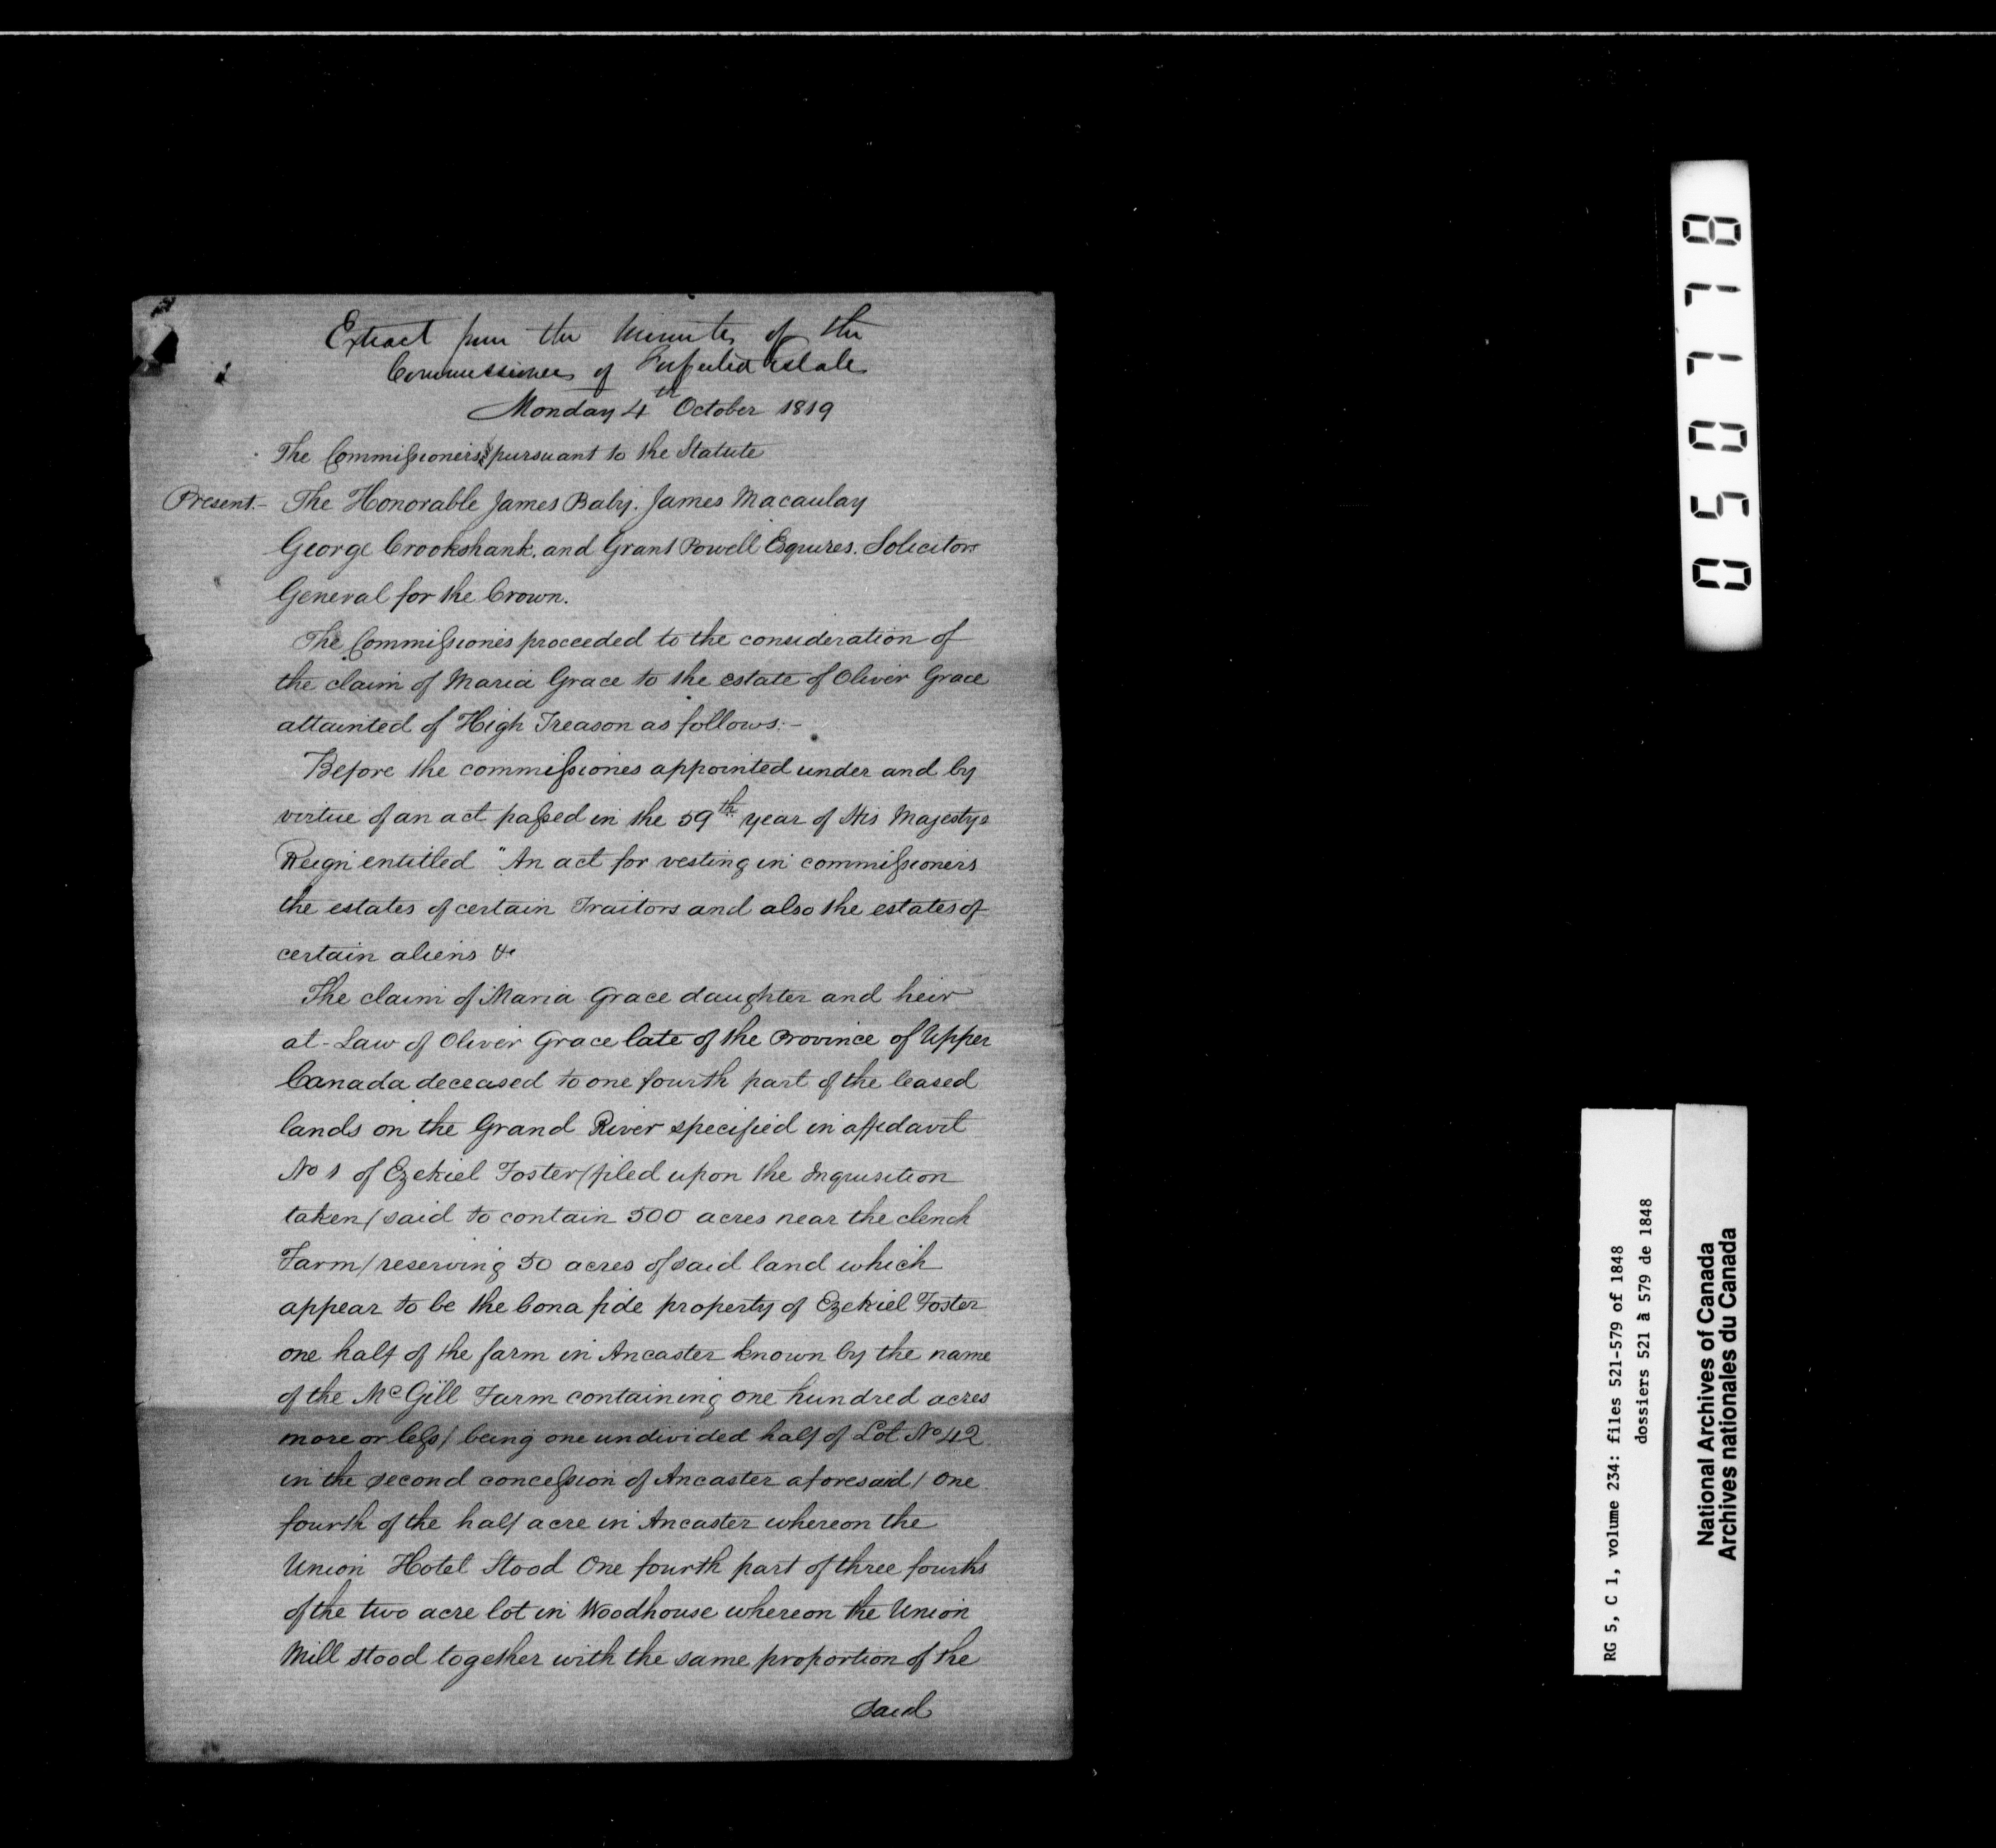 Extract from the Minutes of the
Commissioners of Forfeited Estate
Monday 4th October 1819
The Commissioners pursuant to the Statute
Present.- The Honorable James Baby. James Macaulay
George Crookshank. and Grant Powell Esquires. Solicitor
General for the Crown.
The Commissiones proceeded to the consideration of
the claim of Maria Grace to the estate of Oliver Grace
attainted of High Treason as follows:-
Before the commissiones appointed under and by
virtue of an act passed in the 59th year of His Majestys
Reign entitled "An act for vesting in commissioners
the estates of certain Traitors and also the estates of
certain aliens &c
The claim of Maria Grace daughter and heir
at-Law of Oliver Grace late of the Province of Upper
Canada deceased to one fourth part of the leased
lands on the Grand River specified in affidavit
No 1 of Ezekiel Foster/filed upon the Inquisition
taken/said to contain 500 acres near the clench
Farm/reserving 50 acres of said land which
appear to be the bona fide property of Ezekiel Foster
one half of the farm in Ancaster known by the name
of the McGill Farm containing one hundred acres
more or less/ being one undivided half of Lot No 42
in the second concession of Ancaster aforesaid/ One
fourth of the half acre in Ancaster whereon the
Union Hotel Stood One fourth part of three fourths
of the two acre lot in Woodhouse whereon the Union
Mill stood together with the same proportion of the
said
0501718
RG 5, C 1, volume 234: files 521-579 of 1848
dossiers 521 à 579 de 1848
National Archives of Canada
Archives nationales du Canada